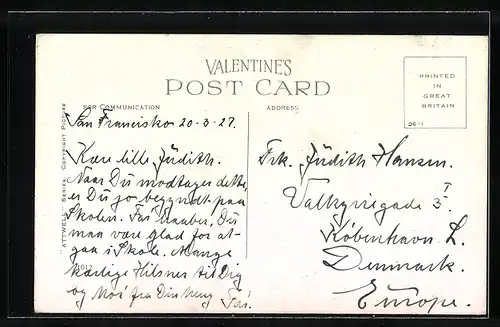 VALENTINE'S
POST CARD
FOR COMMUNICATION
ADDRESS
PRINTED
IN
GREAT
BRITAIN
26-1
"ATTWELL" SERIES. COPYRIGHT PICTURE
San Francisko 20-3-27.
Kære lille Jüdith.
Naar Du modtager dette
er Du jo begyndt paa
Skolen. Far haaber, Du
maa være glad for at
gaa i Skole. Mange
kærlige Hilsner til Dig
og Mor fra Din heng Far.
Frk. Jüdith Hansen.
Valkyriegade 3 I
København L.
Denmark.
Europe.